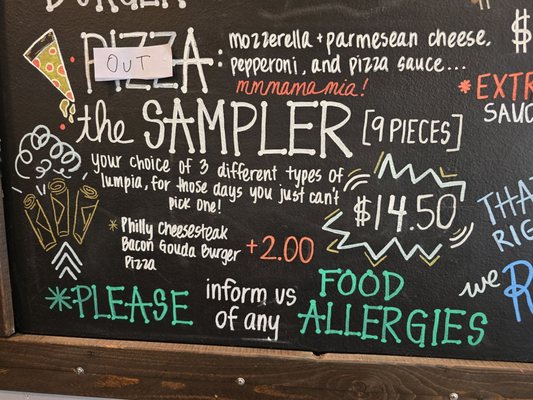 BURGER
PIZZA: mozzerella + parmesean cheese,
OUT
pepperoni, and pizza sauce...
mmmama mia!
the SAMPLER [9 PIECES]
your choice of 3 different types of
lumpia, for those days you just can't
pick one!
$14.50
* Philly Cheesesteak
Bacon Gouda Burger +2.00
Pizza
*PLEASE inform us of any FOOD ALLERGIES
$
*EXTR
SAUC
THAT
RIG
we R